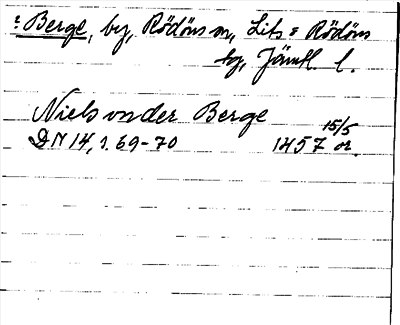 : Berge, by, Rödöns sn, Lits o Rödöns
tg, Jämtl. l.
Niels vnder Berge
DN 14, s. 69-70 1457 15/5 or.